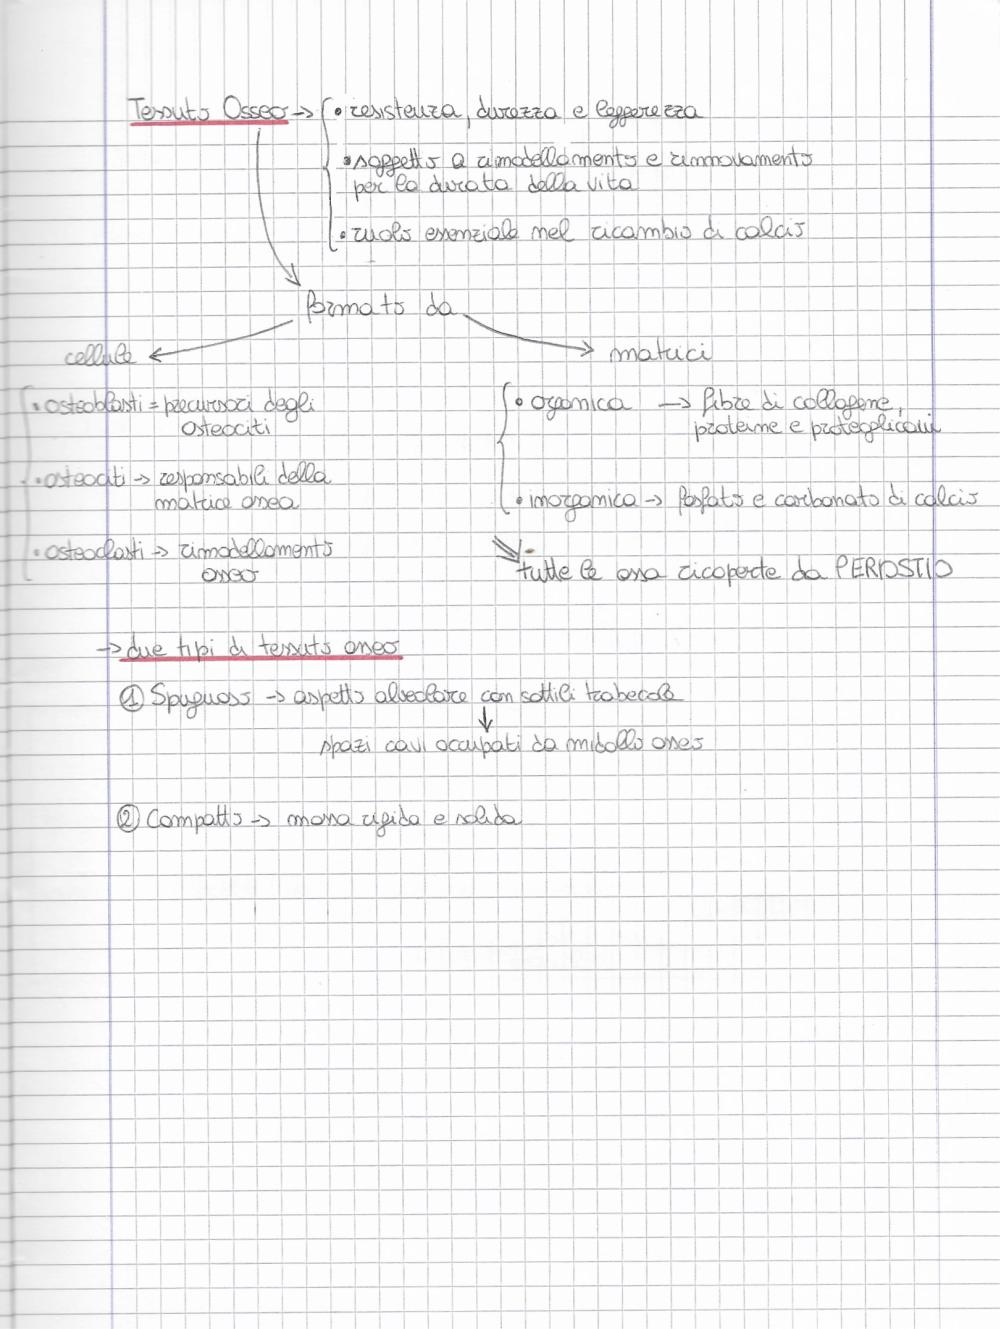 Tessuto Osseo → • resistenza, durezza e leggerezza
• soggetto a rimodellamento e rinnovamento
per la durata della vita
• ruolo essenziale nel ricambio di calcio
formato da
cellule
matrici
• osteoblasti = precursori degli
osteociti
• osteociti → responsabili della
matrice ossea
• osteoclasti → rimodellamento
osseo
• organica → fibre di collagene,
proteine e proteoglicani
• inorganica → fosfato e carbonato di calcio
tutte le ossa ricoperte da PERIOSTIO
→ due tipi di tessuto osseo
① Spugnoso → aspetto alveolare con sottili trabecole
↓
spazi cavi occupati da midollo osseo
② Compatto → massa rigida e solida